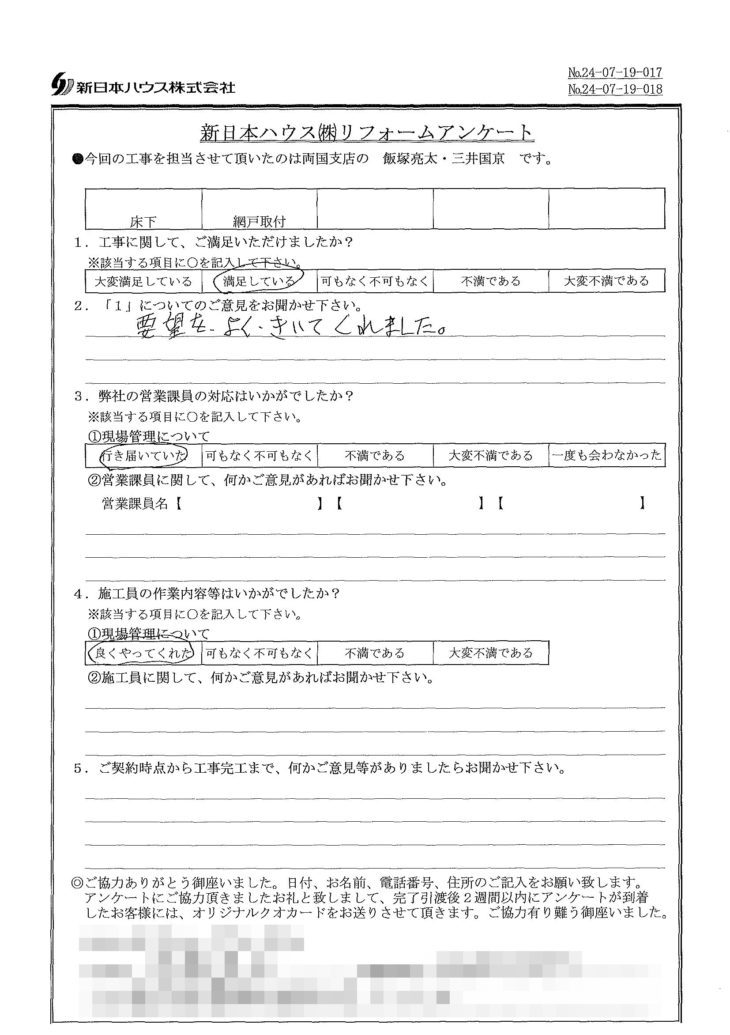 新日本ハウス株式会社
№24-07-19-017
№24-07-19-018
新日本ハウス㈱リフォームアンケート
●今回の工事を担当させて頂いたのは両国支店の 飯塚亮太・三井国京 です。
床下 網戸取付
1．工事に関して、ご満足いただけましたか？
※該当する項目に○を記入して下さい。
大変満足している 満足している 可もなく不可もなく 不満である 大変不満である
2．「1」についてのご意見をお聞かせ下さい。
要望を、よく、きいてくれました。
3．弊社の営業課員の対応はいかがでしたか？
※該当する項目に○を記入して下さい。
①現場管理について
行き届いていた 可もなく不可もなく 不満である 大変不満である 一度も会わなかった
②営業課員に関して、何かご意見があればお聞かせ下さい。
営業課員名【 】【 】【 】
4．施工員の作業内容等はいかがでしたか？
※該当する項目に○を記入して下さい。
①現場管理について
良くやってくれた 可もなく不可もなく 不満である 大変不満である
②施工員に関して、何かご意見があればお聞かせ下さい。
5．ご契約時点から工事完工まで、何かご意見等がありましたらお聞かせ下さい。
◎ご協力ありがとう御座いました。日付、お名前、電話番号、住所のご記入をお願い致します。
アンケートにご協力頂きましたお礼と致しまして、完了引渡後２週間以内にアンケートが到着
したお客様には、オリジナルクオカードをお送りさせて頂きます。ご協力有り難う御座いました。